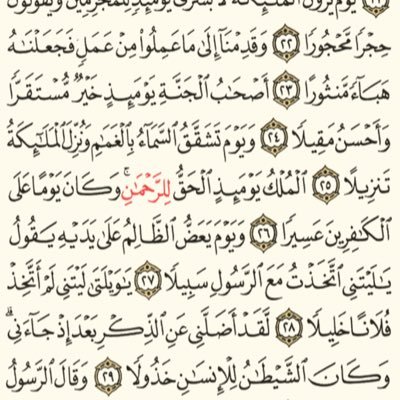 ٢١ يَوْمَ يَرَوْنَ ٱلْمَلَٰٓئِكَةَ لَا بُشْرَىٰ يَوْمَئِذٍ لِّلْمُجْرِمِينَ وَيَقُولُونَ
حِجْرًا مَّحْجُورًا ٢٢ وَقَدِمْنَآ إِلَىٰ مَا عَمِلُوا۟ مِنْ عَمَلٍ فَجَعَلْنَٰهُ
هَبَآءً مَّنثُورًا ٢٣ أَصْحَٰبُ ٱلْجَنَّةِ يَوْمَئِذٍ خَيْرٌ مُّسْتَقَرًّا
وَأَحْسَنُ مَقِيلًا ٢٤ وَيَوْمَ تَشَقَّقُ ٱلسَّمَآءُ بِٱلْغَمَٰمِ وَنُزِّلَ ٱلْمَلَٰٓئِكَةُ
تَنزِيلًا ٢٥ ٱلْمُلْكُ يَوْمَئِذٍ ٱلْحَقُّ لِلرَّحْمَٰنِ ۚ وَكَانَ يَوْمًا عَلَى
ٱلْكَٰفِرِينَ عَسِيرًا ٢٦ وَيَوْمَ يَعَضُّ ٱلظَّالِمُ عَلَىٰ يَدَيْهِ يَقُولُ
يَٰلَيْتَنِى ٱتَّخَذْتُ مَعَ ٱلرَّسُولِ سَبِيلًا ٢٧ يَٰوَيْلَتَىٰ لَيْتَنِى لَمْ أَتَّخِذْ
فُلَانًا خَلِيلًا ٢٨ لَّقَدْ أَضَلَّنِى عَنِ ٱلذِّكْرِ بَعْدَ إِذْ جَآءَنِى ۗ
وَكَانَ ٱلشَّيْطَٰنُ لِلْإِنسَٰنِ خَذُولًا ٢٩ وَقَالَ ٱلرَّسُولُ